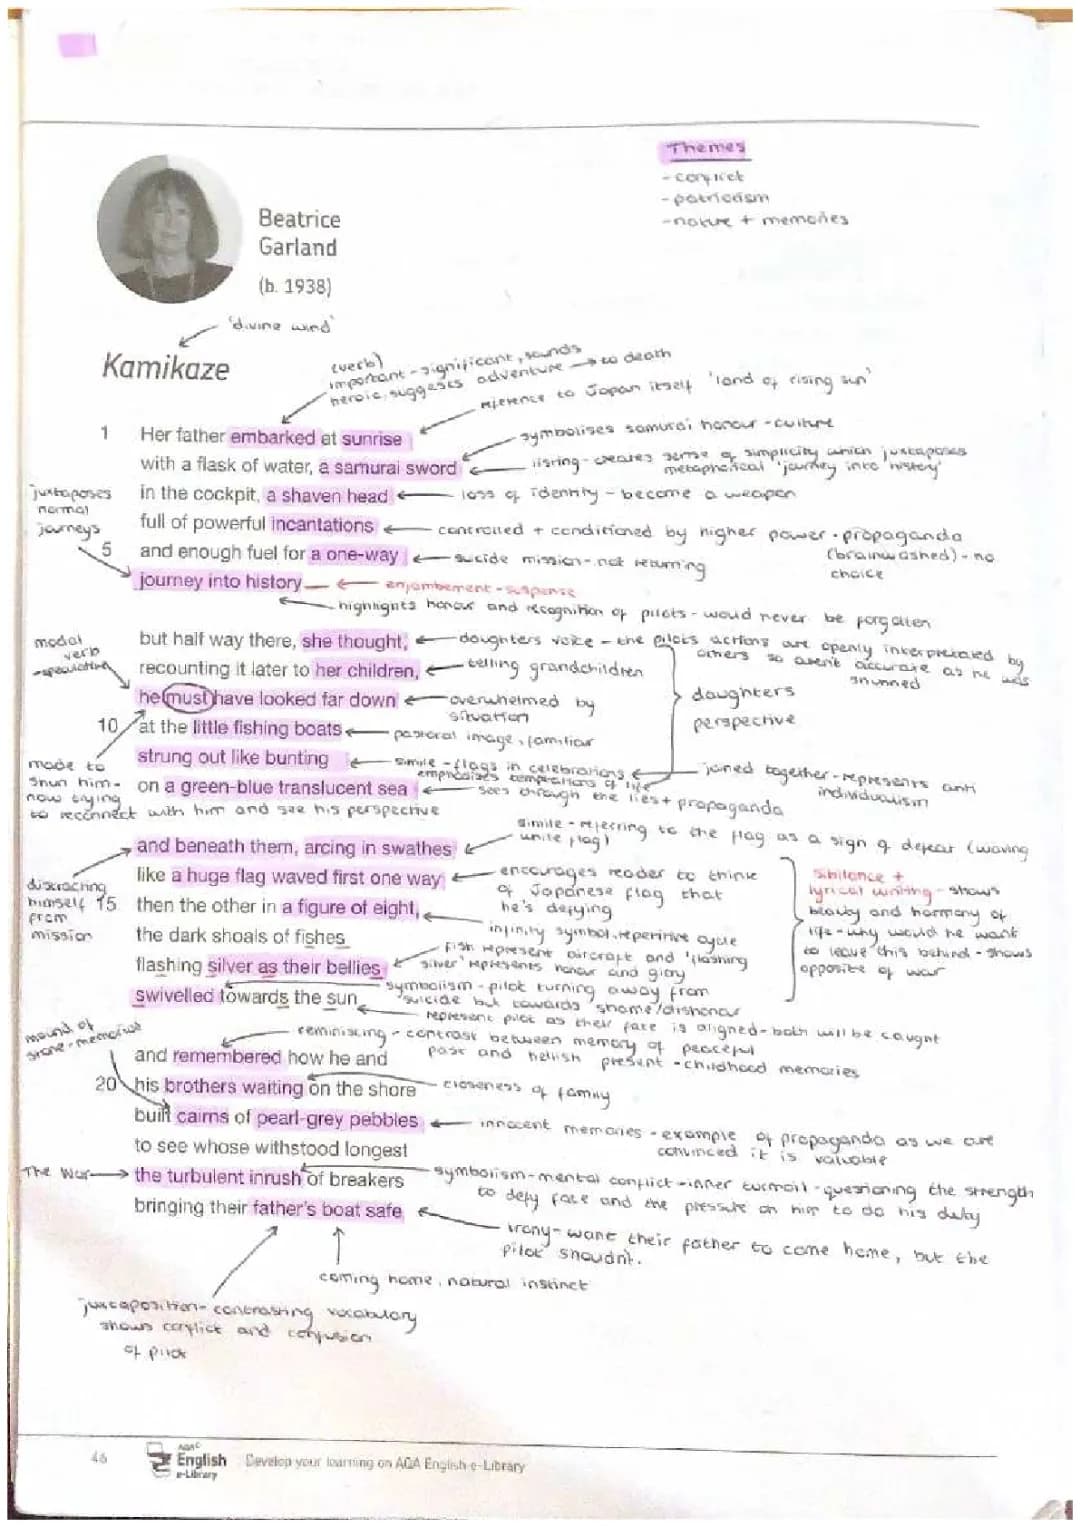 Themes
- conflict
- patriotism
- nature + memories
Beatrice
Garland
(b. 1938)
'divine wind'
Kamikaze
(verb)
important - significant, sounds
heroic, suggests adventure → to death
reference to Japan itself 'land of rising sun'
1 Her father embarked at sunrise
symbolises samurai honour - culture
with a flask of water, a samurai sword
listing - creates sense of simplicity which juxtaposes
metaphorical 'journey into history'
juxtaposes
normal
journeys
in the cockpit, a shaven head
loss of identity - become a weapon
full of powerful incantations
controlled + conditioned by higher power - propaganda
(brainwashed) - no
choice
5 and enough fuel for a one-way
suicide mission - not returning
journey into history
enjambement - suspense
highlights honour and recognition of pilots - would never be forgotten
modal
verb
- speculating
but half way there, she thought,
daughters voice - the pilots actions are openly interpretated by
others so aren't accurate as he was
shunned
recounting it later to her children,
telling grandchildren
he must have looked far down
overwhelmed by
situation
daughters
perspective
10 at the little fishing boats
pastoral image, familiar
strung out like bunting
simile - flags in celebrations
emphasises temptations of life
joined together - represents anti
individualism
made to
shun him -
now trying
to reconnect with him and see his perspective
on a green-blue translucent sea
sees through the lies + propaganda
simile - referring to the flag as a sign of defeat (waving
white flag)
and beneath them, arcing in swathes
like a huge flag waved first one way
encourages reader to think
of Japanese flag that
he's defying
distracting
himself
from
mission
15 then the other in a figure of eight,
infinity symbol, repetitive cycle
the dark shoals of fishes
fish represent aircraft and 'flashing
silver' represents honour and glory
flashing silver as their bellies
symbolism - pilot turning away from
suicide but towards shame/dishonour
swivelled towards the sun
represent pilot as their fate is aligned - both will be caught
sibilance +
lyrical writing - shows
beauty and harmony of
life - why would he want
to leave this behind - shows
opposite of war
mound of
stone - memories
reminiscing - contrast between memory of peaceful
past and hellish present - childhood memories
and remembered how he and
20 his brothers waiting on the shore
closeness of family
built cairns of pearl-grey pebbles
innocent memories - example of propaganda as we are
convinced it is valuable
to see whose withstood longest
The War → the turbulent inrush of breakers
symbolism - mental conflict - inner turmoil - questioning the strength
to defy fate and the pressure on him to do his duty
bringing their father's boat safe
irony - want their father to come home, but the
pilot shouldn't.
coming home, natural instinct
juxtaposition - contrasting vocabulary
shows conflict and confusion
of pilot
46
AQA
English
e-Library
Develop your learning on AQA English e-Library